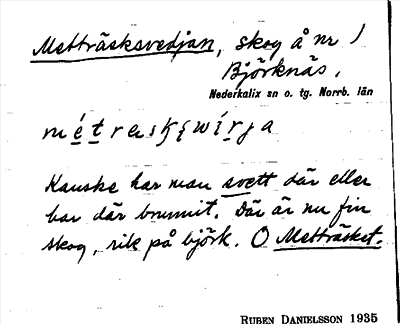 Metträsksvedjan, skog å nr 1
Björknäs.
Nederkalix sn o. tg. Norrb. län
Kanske har man svett där eller
har där brunnit. Där är nu fin
skog, rik på björk. O Metträsket.
RUBEN DANIELSSON 1935